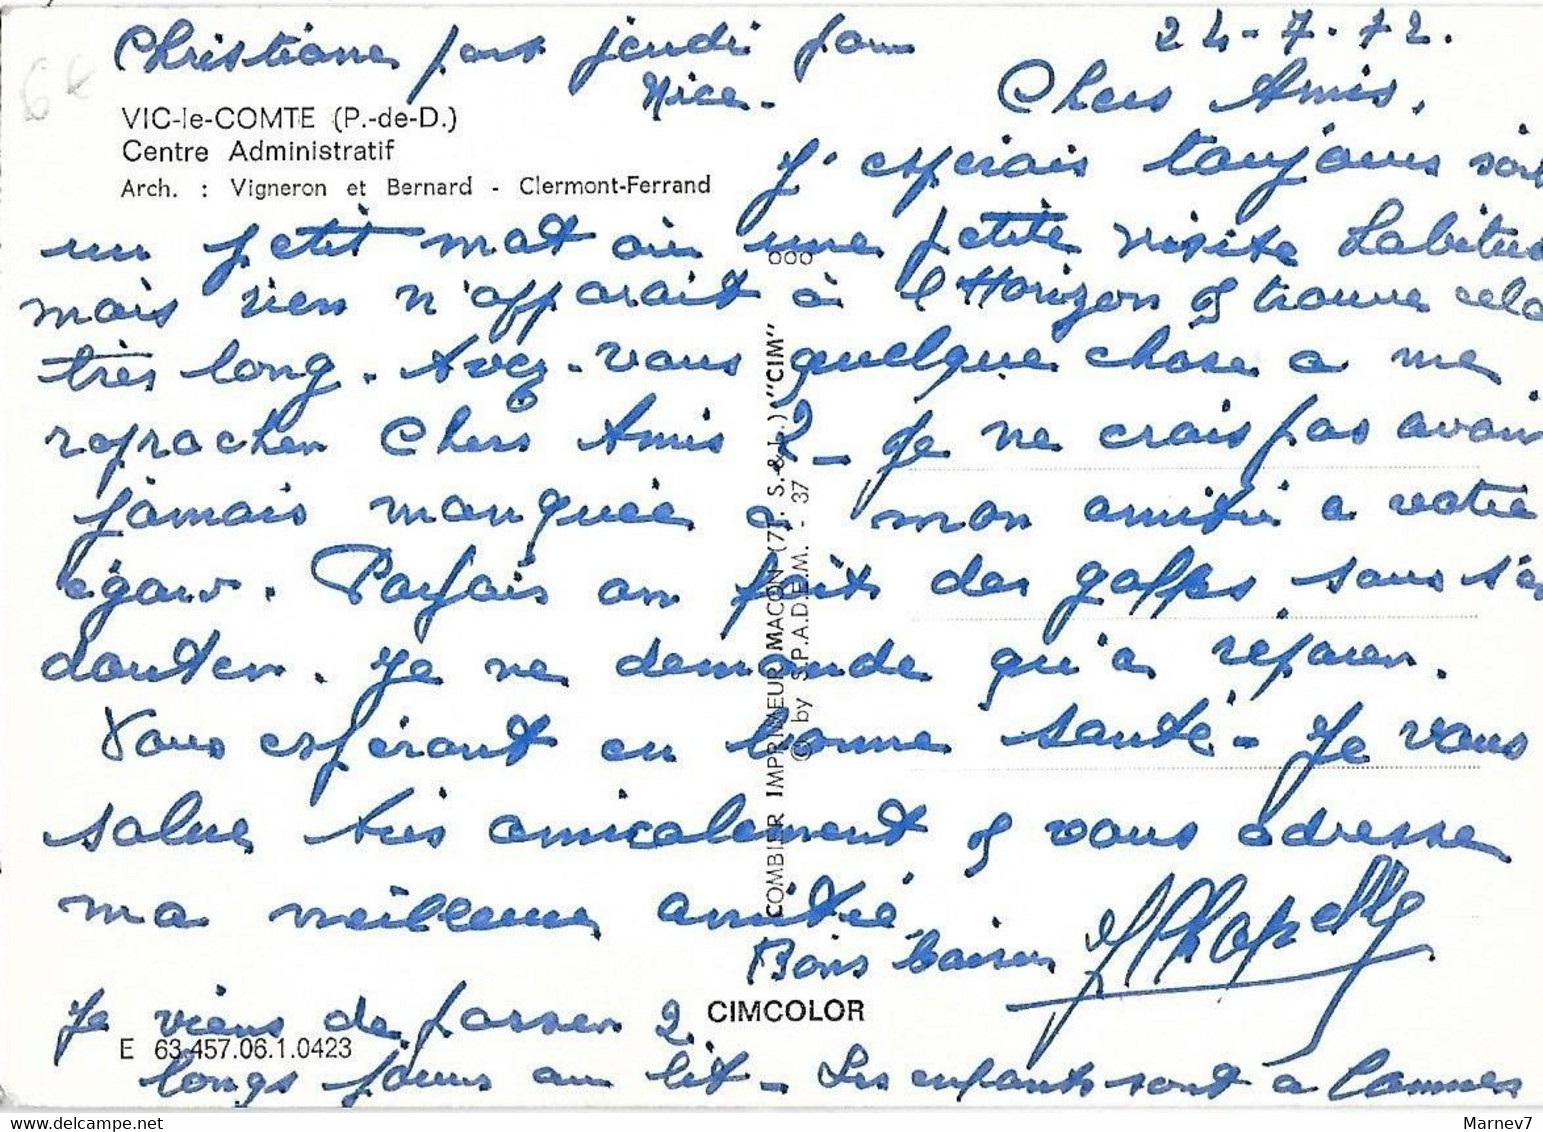 Christiane part jeudi pour 24-7-72.
Nice - Chers Amis,
6€
VIC-le-COMTE (P.-de-D.)
Centre Administratif
Arch. : Vigneron et Bernard - Clermont-Ferrand
J'esperais toujours soit
un petit mot ou une petite visite habitue
mais rien n'apparait à l'Horizon & trouve cela
très long. Avez-vous quelque chose a me
reprocher Chers Amis ? - Je ne crois pas avoir
jamais manquée a mon amitié a votre
égard. Parfois on fait des gaffes sans s'en
douter. Je ne demande qu'a réparer.
Vous espérant en bonne santé - Je vous
salue très amicalement & vous adresse
ma meilleure amitié
Bons baisers Chapelle
Je viens de passer 2
longs jours au lit - Les enfants sont a Cannes
COMBIER IMPRIMEUR MACON (71 S.&L.) "CIM"
© by S.P.A.D.E.M. - 37
CIMCOLOR
E 63.457.06.1.0423
Marnev7